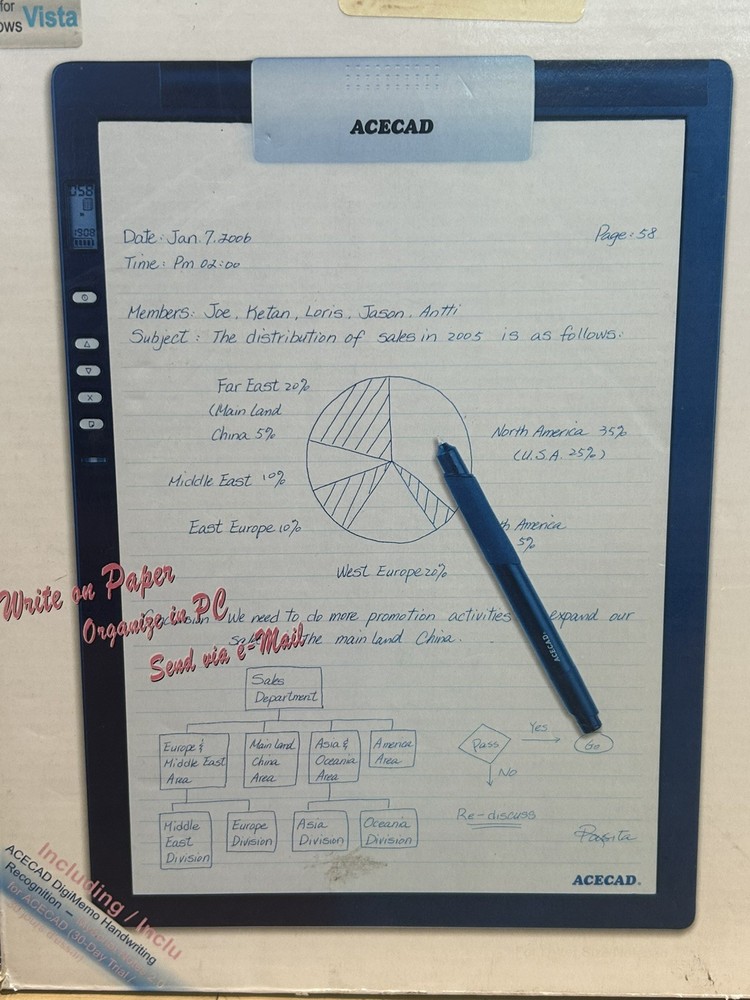 for
ows Vista
ACECAD
058
1908
Date: Jan. 7. 2006
Page: 58
Time: Pm 02:00
Members: Joe, Ketan, Loris, Jason, Antti
Subject: The distribution of sales in 2005 is as follows:
Far East 20%
(Main Land
China 5%
North America 35%
(U.S.A. 25%)
Middle East 10%
East Europe 10%
th America
5%
West Europe 20%
Write on Paper
Organize in PC
Send via e-Mail
We need to do more promotion activities expand our
the main land China.
ACECAD
Sales
Department
Europe &
Middle East
Area
Main land
China
Area
Asia &
Oceania
Area
America
Area
Pass
Yes
Go
No
Re-discuss
Middle
East
Division
Europe
Division
Asia
Division
Oceania
Division
ACECAD
Including / Inclu
ACECAD DigiMemo Handwriting
Recognition –
for ACECAD (30-Day Trial